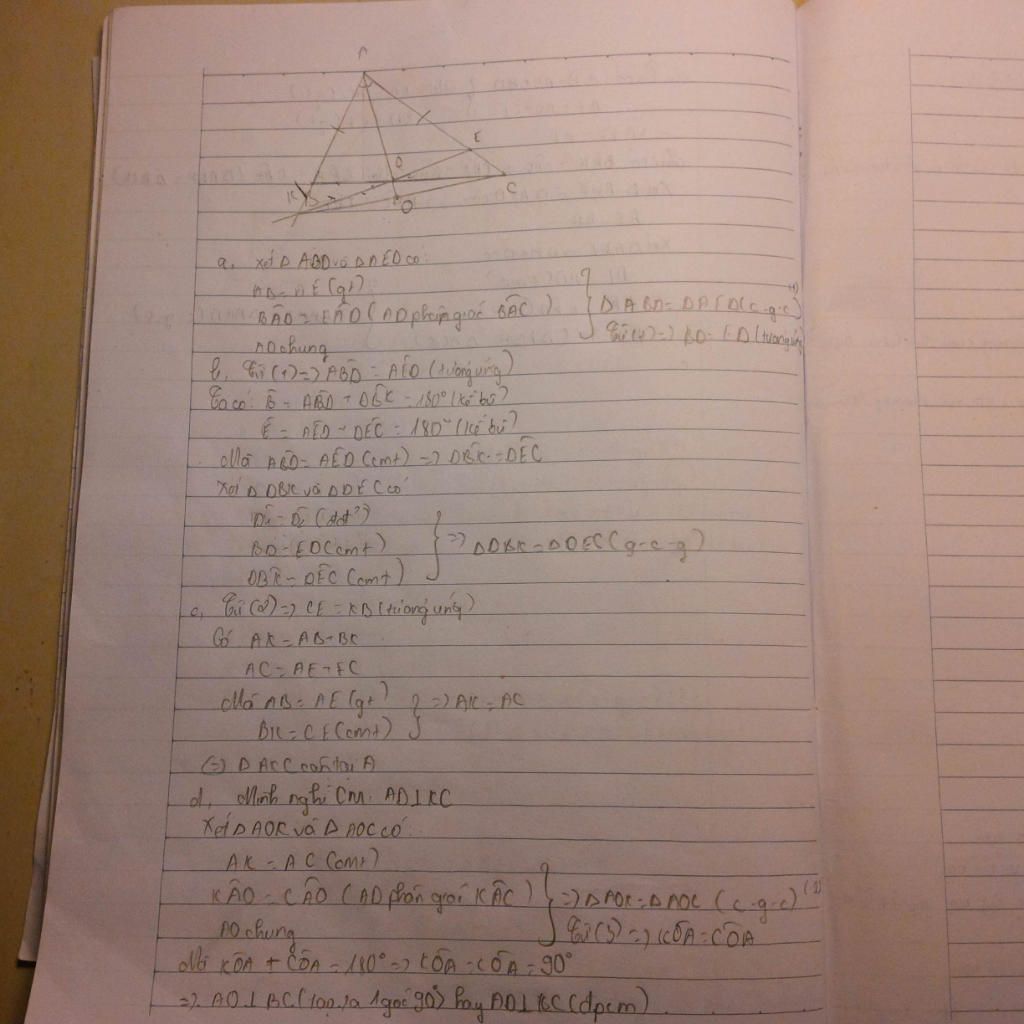 A
E
D
C
K
B
O
a, Xét Δ ABD và Δ AED có:
AB = AE (gt)
BÂD = EÂD (AD phân giác BÂC)
AD chung
Δ ABD = Δ AED (c-g-c) (1)
Từ (1) => BD = ED (tương ứng)
b, Từ (1) => AB̂D = AÊD (tương ứng)
Ta có: B̂ = AB̂D + DB̂K = 180° (kề bù)
Ê = AÊD + DÊC = 180° (kề bù)
Mà AB̂D = AÊD (cmt) => DB̂K = DÊC
Xét Δ DBK và Δ DEC có
BD = ED (cmt)
DB̂K = DÊC (cmt)
=> Δ DBK = Δ DEC (g-c-g)
c, Từ (2) => CE = KB (tương ứng)
Có AK = AB + BK
AC = AE + EC
Mà AB = AE (gt)
BK = CE (cmt)
=> AK = AC
=> Δ ACC cân tại A
d, Mình nghĩ CM: AD ⊥ KC
Xét Δ AOK và Δ AOC có:
AK = AC (cmt)
KÂO = CÂO (AD phân giác KÂC)
AO chung
=> Δ AOK = Δ AOC (c-g-c) (3)
Từ (3) => KÔA = CÔA
Mà KÔA + CÔA = 180° => KÔA = CÔA = 90°
=> AO ⊥ BC (tạo ra 1 góc 90°) hay AD ⊥ KC (đpcm)